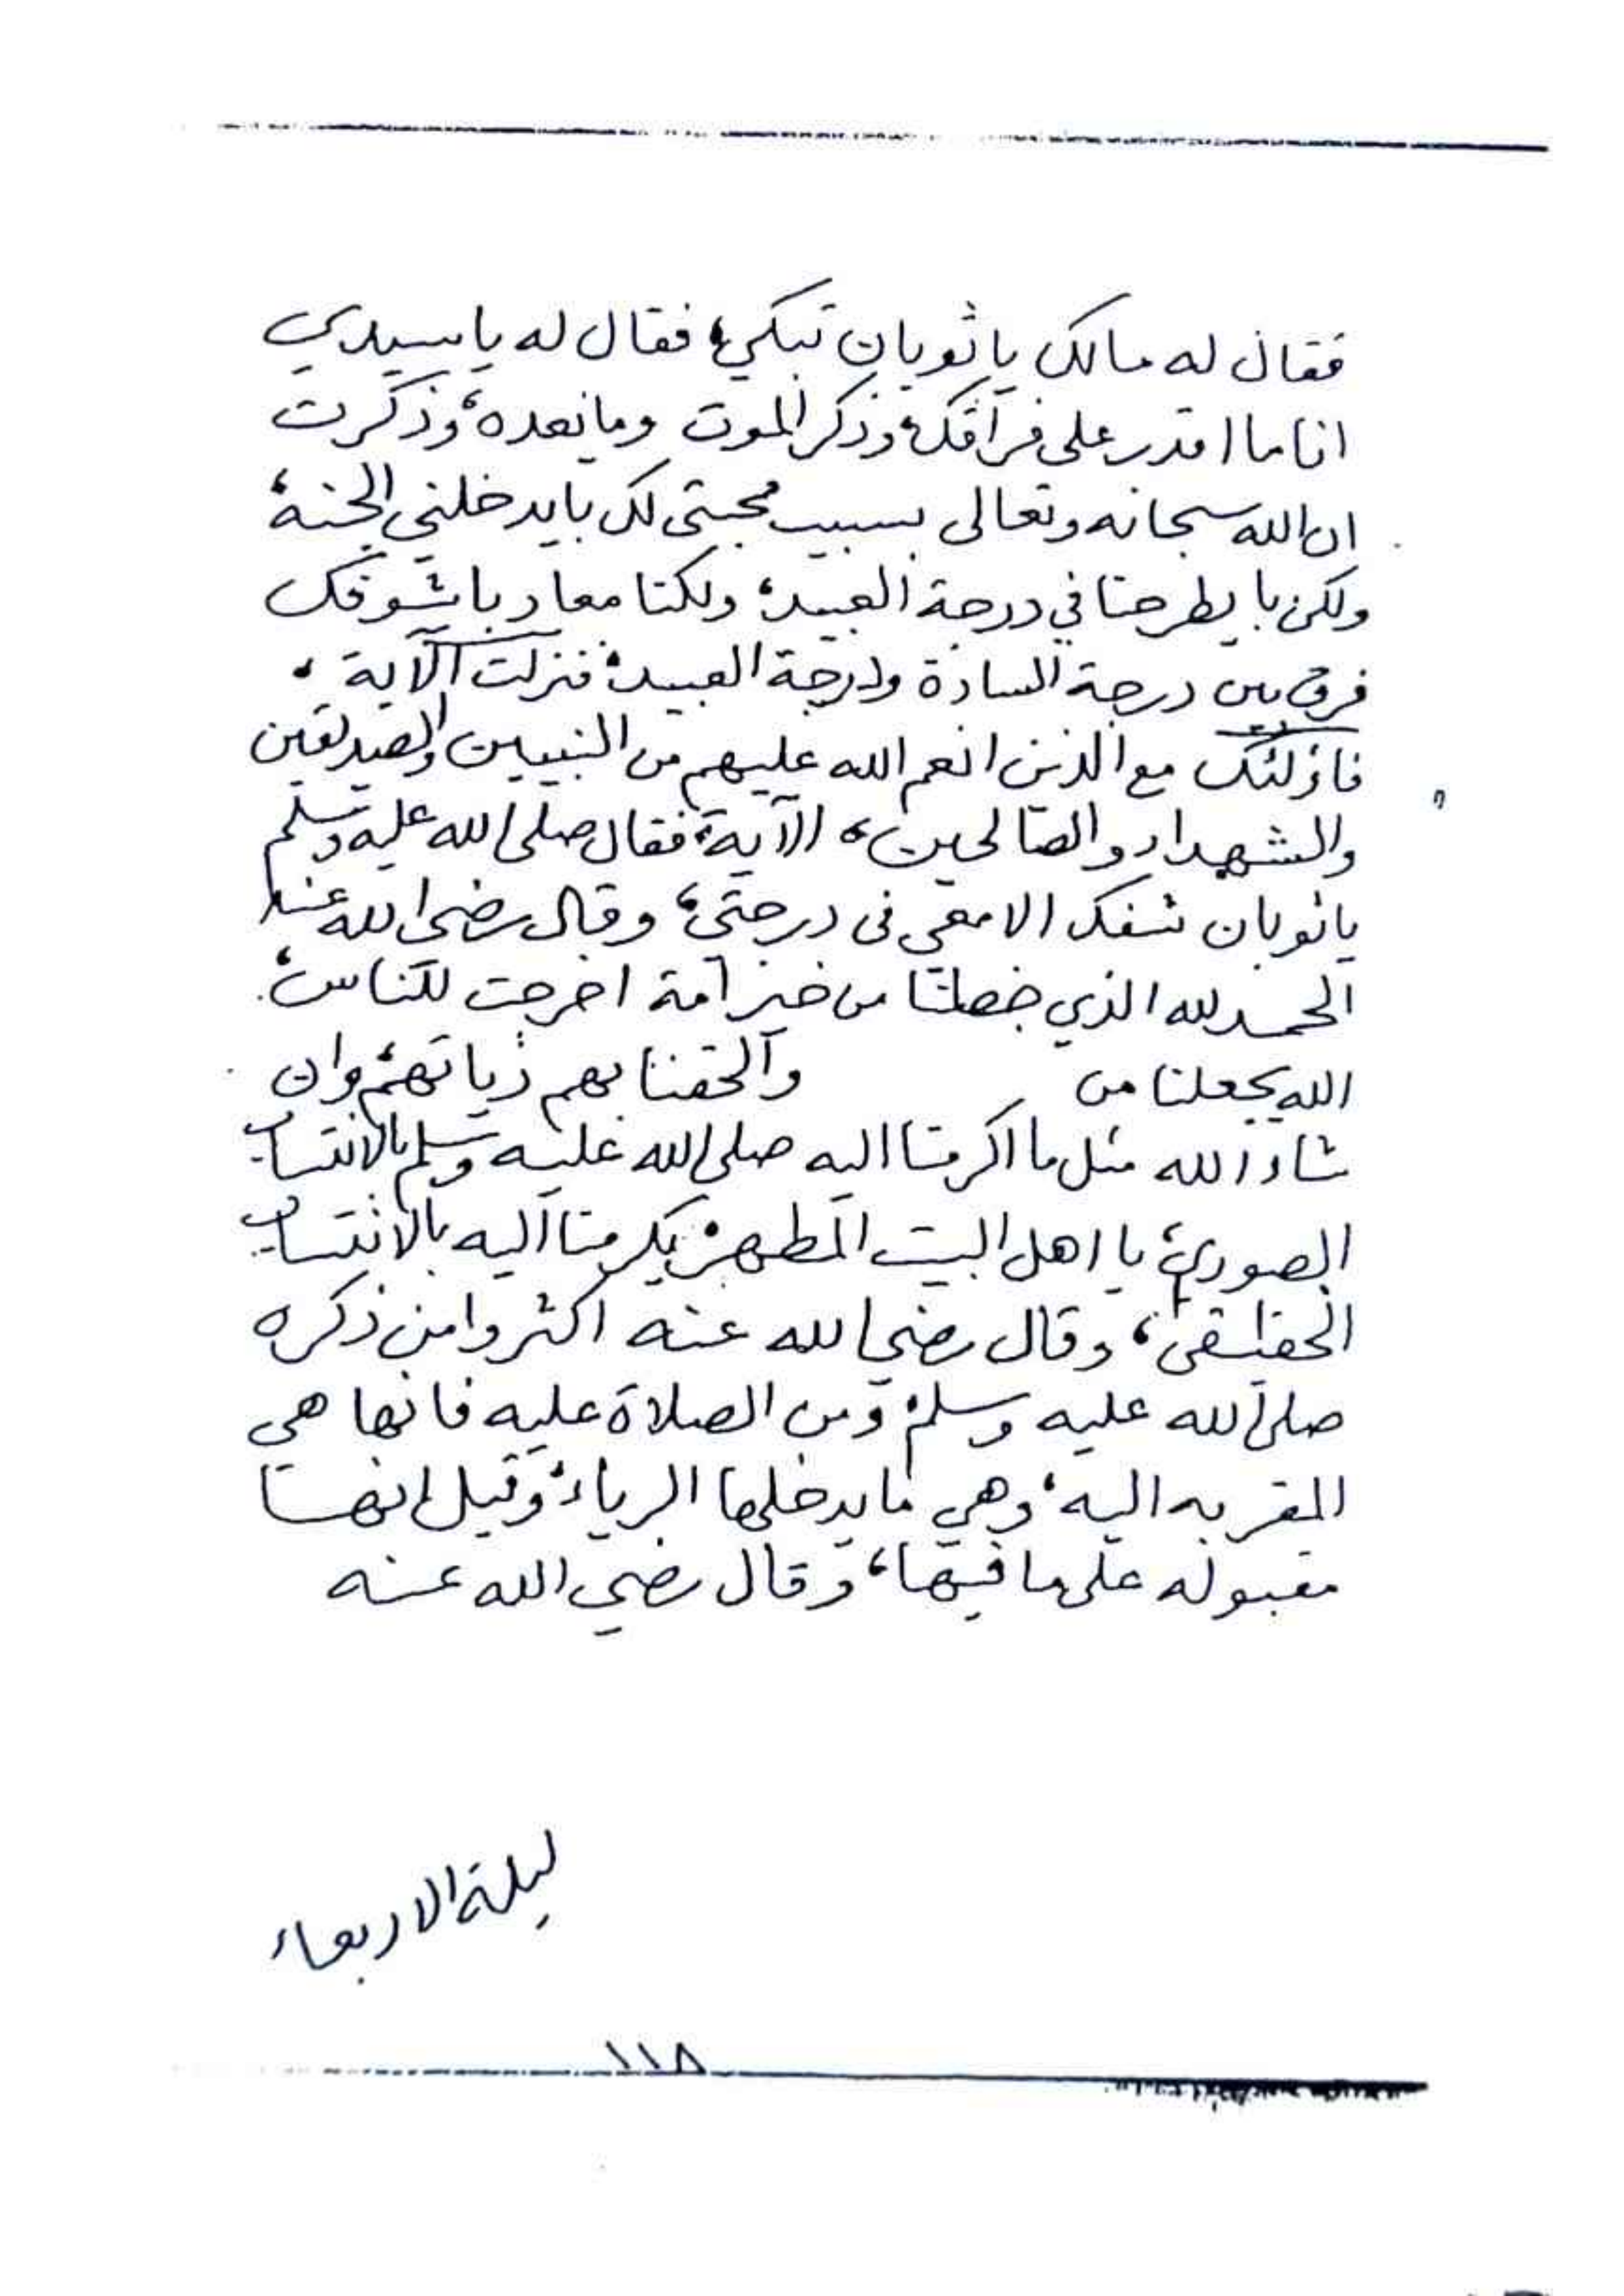 فقال له مالك يا ثوبان تبكي؛ فقال له يا سيدي
انا ما اقدر على فراقك؛ وذكر الموت وما بعده؛ وذكرت
ان الله سبحانه وتعالى بسبب محبتى لك بايدخلني الجنة؛
ولكن با يطرحنا في درجة العبيد؛ ولكنا معاد باشوفك
فرق بين درجة السادة ودرجة العبيد؛ فنزلت الآية ،
فاؤلئك مع الذين انعم الله عليهم من النبيين والصديقين
والشهداء والصالحين، الآية؛ فقال صلى الله عليه وسلم
يا ثوبان شفك الا معي فى درجتي؛ وقال رضي الله عنه
الحمد لله الذي خصنا من خير امة اخرجت للناس؛
الله يجعلنا من والحقنا بهم ذياتهم؛ وان
شاء الله مثل ما اكرمنا اليه صلى الله عليه وسلم بالانتساب
الصوري؛ يا اهل البيت المطهر؛ يكرمنا اليه بالانتساب
الحقيقي؛ وقال رضي الله عنه اكثروا من ذكره
صلى الله عليه وسلم؛ ومن الصلاة عليه فانها هي
المقربه اليه؛ وهي ما يدخلها الرياء؛ وقيل انها
مقبوله على ما فيها؛ وقال رضي الله عنه
ليلة الاربعاء
١١٨